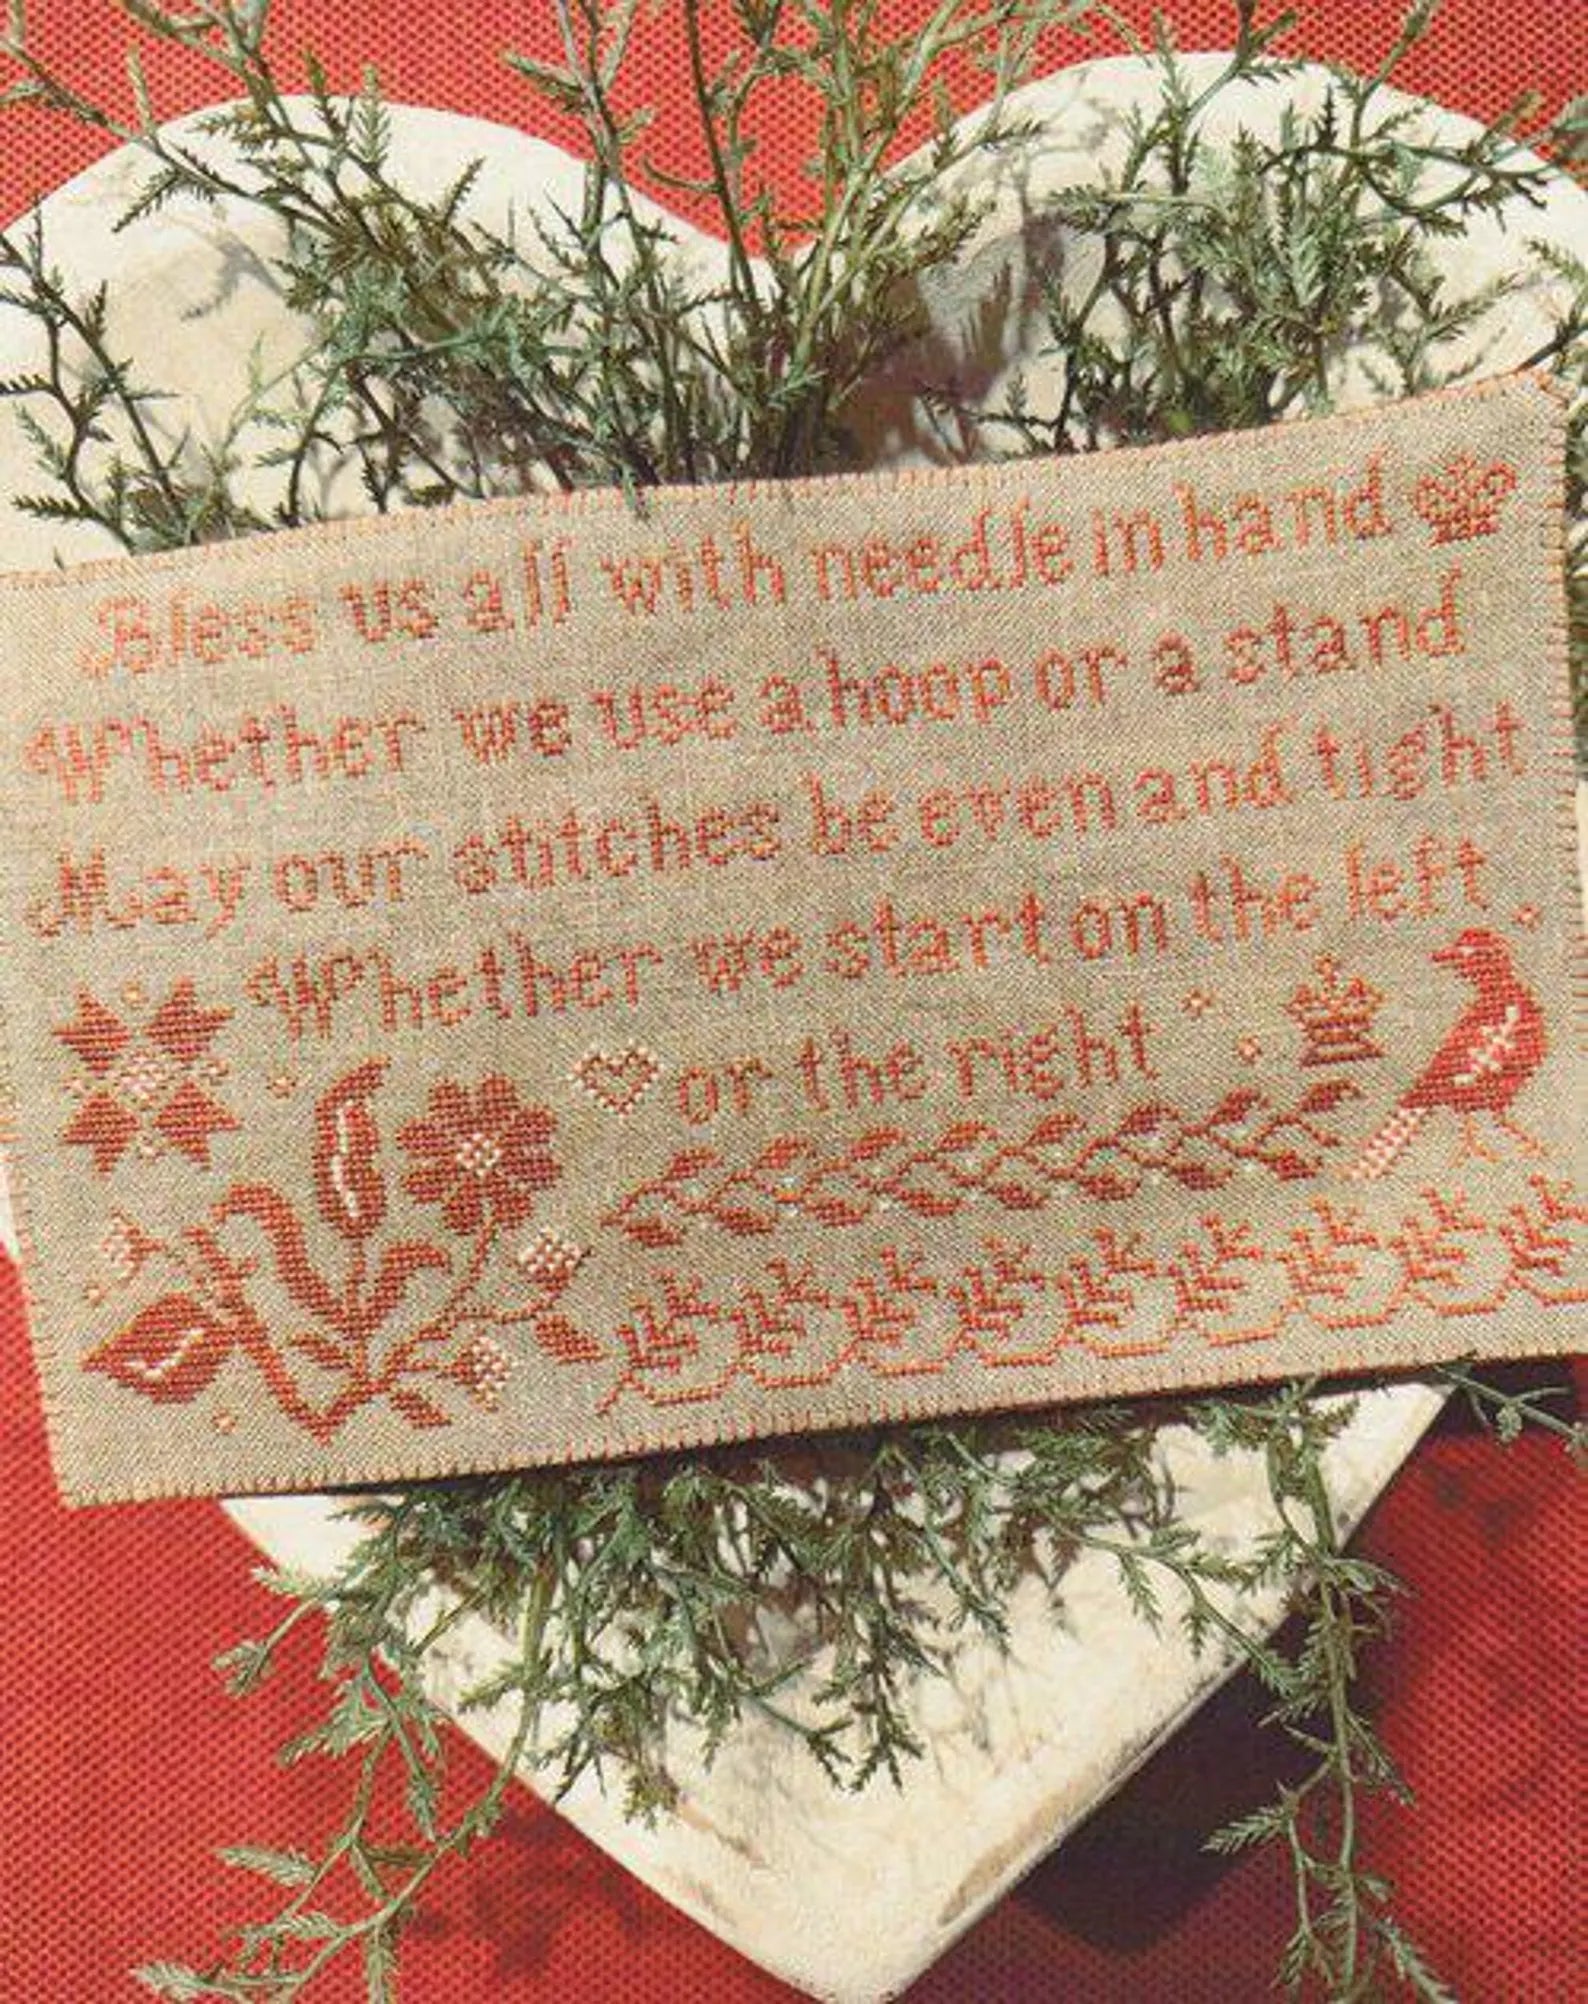 Bless us all with needle in hand
Whether we use a hoop or a stand
May our stitches be even and tight
Whether we start on the left
or the right